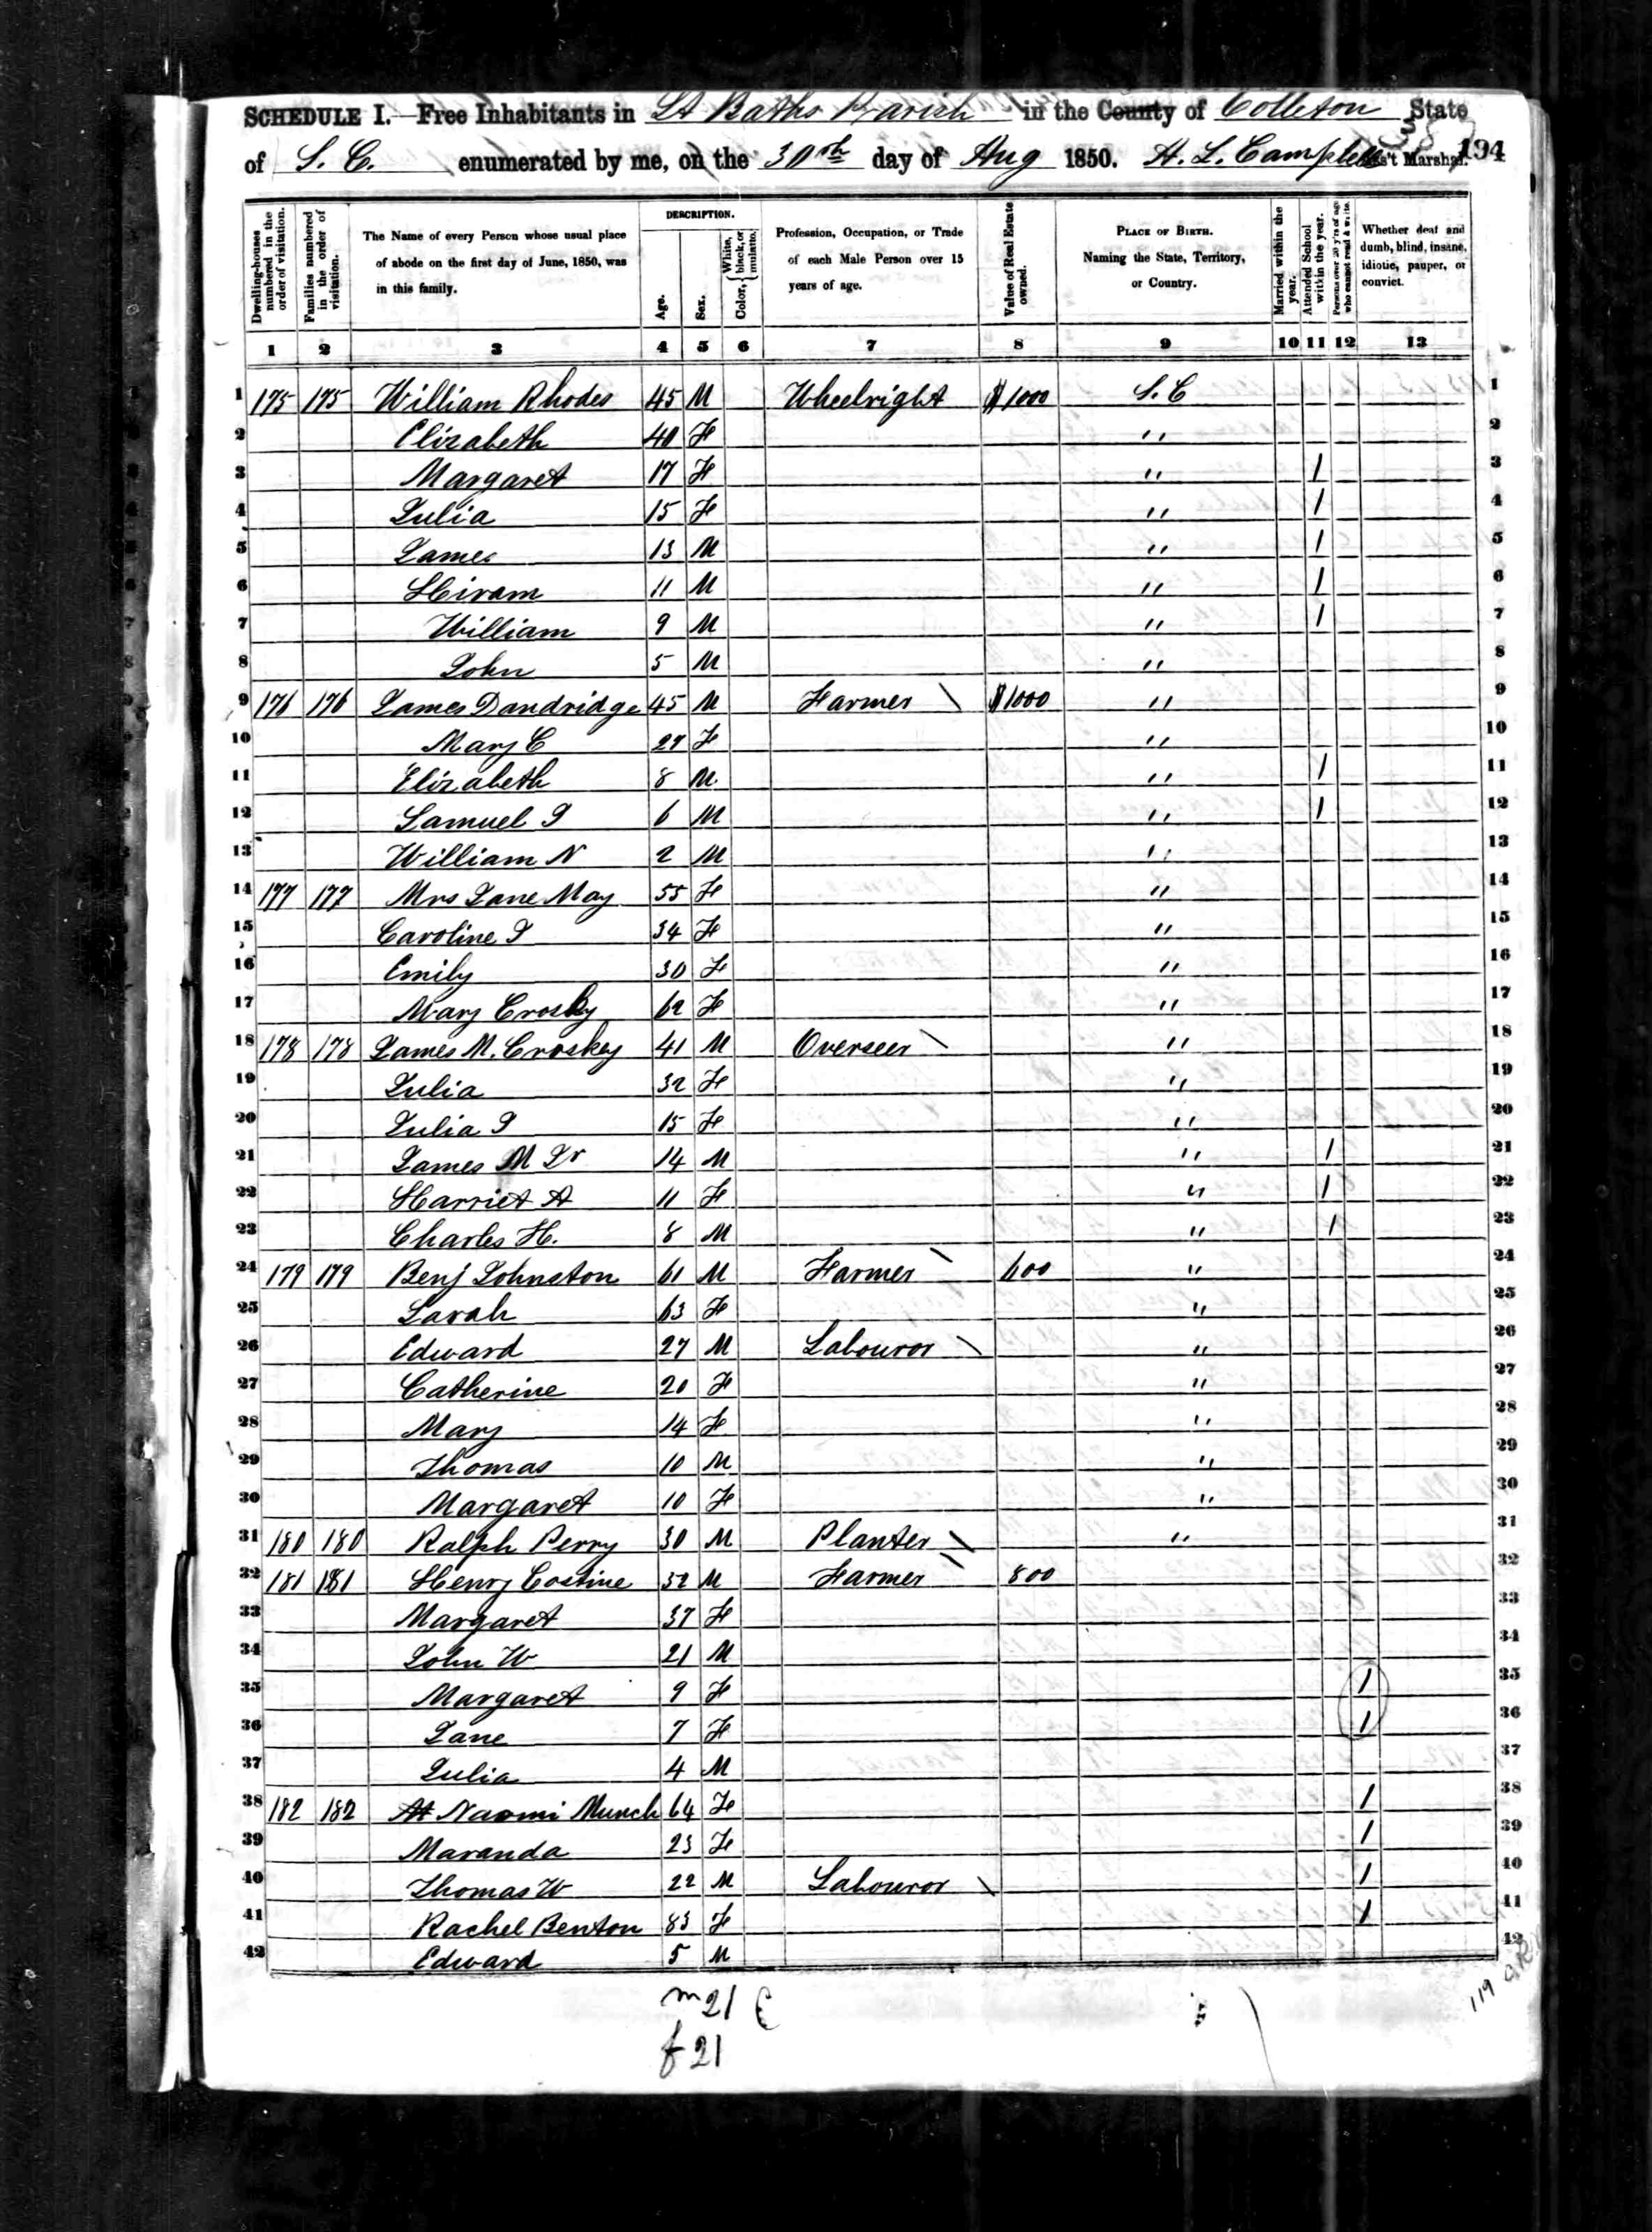 SCHEDULE I. Free Inhabitants in St Baths Parish in the County of Colleton State
of S. C. enumerated by me, on the 30th day of Aug 1850. A. L. Campbell Ass't Marshal. 194
Dwelling-houses numbered in the order of visitation. Families numbered in the order of visitation. The Name of every Person whose usual place of abode on the first day of June, 1850, was in this family. DESCRIPTION. Age. Sex. Color, White, black, or mulatto. Profession, Occupation, or Trade of each Male Person over 15 years of age. Value of Real Estate owned. PLACE OF BIRTH. Naming the State, Territory, or Country. Married within the year. Attended School within the year. Persons over 20 y'rs of age who cannot read & write. Whether deaf and dumb, blind, insane, idiotic, pauper, or convict.
1 2 3 4 5 6 7 8 9 10 11 12 13
1 175 175 William Rhodes 45 M Wheelright $1000 S.C 1
2 Elizabeth 40 F " 2
3 Margaret 17 F " 1 3
4 Julia 15 F " 1 4
5 James 13 M " 1 5
6 Hiram 11 M " 1 6
7 William 9 M " 1 7
8 John 5 M " 8
9 176 176 James Dandridge 45 M Farmer \ $1000 " 9
10 Mary C 27 F " 10
11 Elizabeth 8 M " 1 11
12 Samuel J 6 M " 1 12
13 William N 2 M " 13
14 177 177 Mrs Jane May 55 F " 14
15 Caroline J 34 F " 15
16 Emily 30 F " 16
17 Mary Crosky 62 F " 17
18 178 178 James M. Croskey 41 M Overseer \ " 18
19 Julia 32 F " 19
20 Julia J 15 F " 20
21 James M Jr 14 M " 1 21
22 Harriet A 11 F " 1 22
23 Charles H. 8 M " 1 23
24 179 179 Benj Johnston 61 M Farmer \ 600 " 24
25 Sarah 63 F " 25
26 Edward 27 M Labouror \ " 26
27 Catherine 20 F " 27
28 Mary 14 F " 28
29 Thomas 10 M " 29
30 Margaret 10 F " 30
31 180 180 Ralph Perry 30 M Planter \ " 31
32 181 181 Henry Costine 52 M Farmer \ 800 32
33 Margaret 37 F 33
34 John W 21 M 34
35 Margaret 9 F 1 35
36 Jane 7 F 1 36
37 Julia 4 M 37
38 182 182 Naomi Munch 64 F 1 38
39 Maranda 23 F 1 39
40 Thomas W 22 M Labouror \ 1 40
41 Rachel Benton 83 F 1 41
42 Edward 5 M 42
m 21
f 21
119